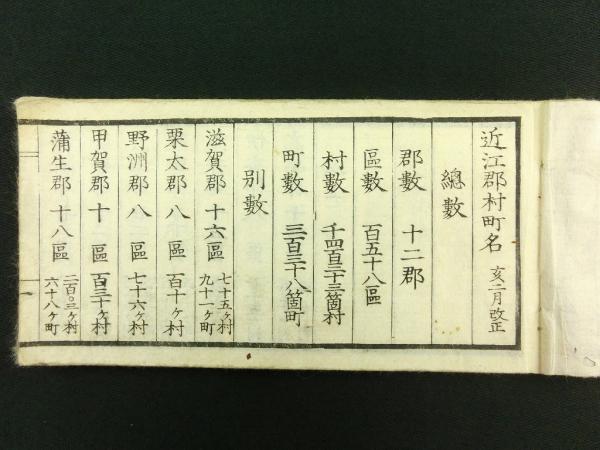 近江郡村町名 亥二月改正
總數
郡數 十二郡
區數 百五十八區
村數 千四百三十三箇村
町數 三百三十八箇町
別數
滋賀郡 十六區 七十五ヶ村 九十一ヶ町
栗太郡 八區 百十ヶ村
野洲郡 八區 七十六ヶ村
甲賀郡 十一區 百三十ヶ村
蒲生郡 十八區 二百〇三ヶ村 六十八ヶ町